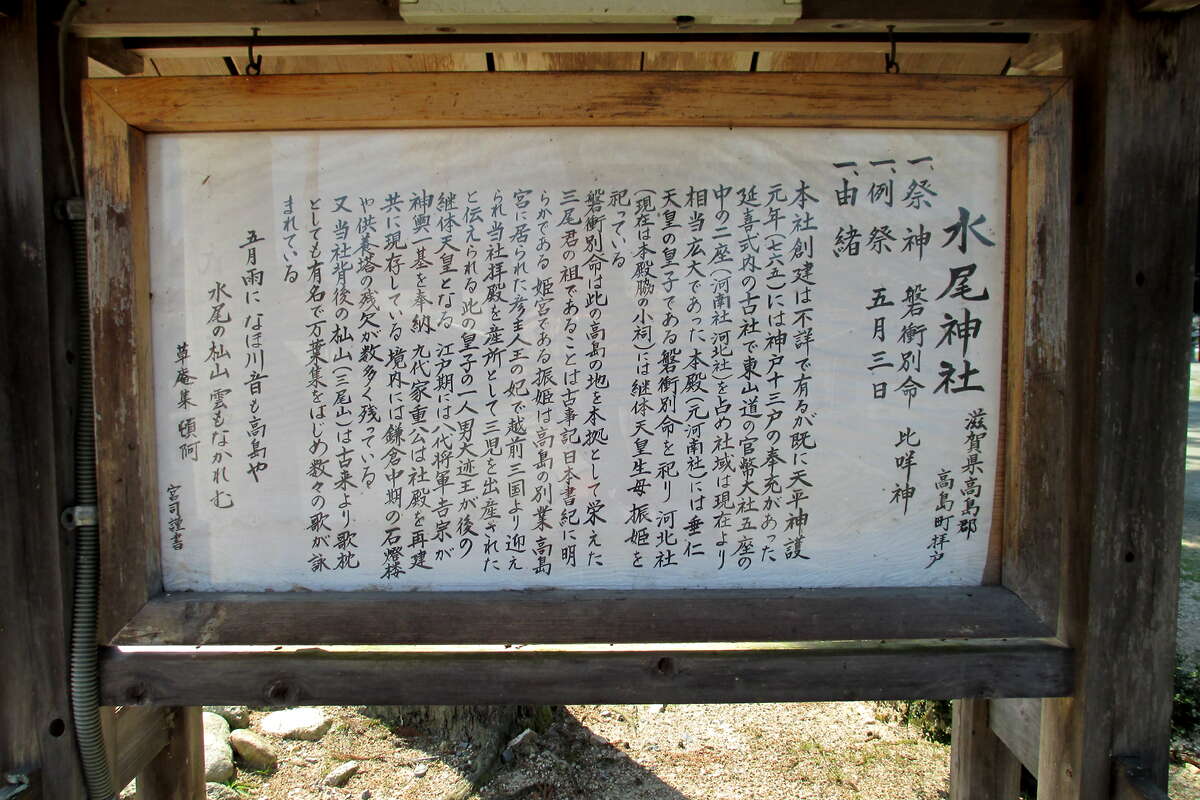 水尾神社
滋賀県高島郡
高島町拝戸
一、祭神 磐衝別命 比咩神
一、例祭 五月三日
一、由緒
本社創建は不詳で有るが既に天平神護
元年(七六五)には神戸十三戸の奉充があった
延喜式内の古社で東山道の官幣大社五座の
中の二座(河南社 河北社)を占め社域は現在より
相当広大であった 本殿(元河南社)には垂仁
天皇の皇子である磐衝別命を祀り 河北社
(現在は本殿脇の小祠)には継体天皇生母 振姫を
祀っている
磐衝別命は此の高島の地を本拠として栄えた
三尾君の祖であることは古事記日本書紀に明
らかである 姫宮である振姫は高島の別業 高島
宮に居られた彦主人王の妃で越前三国より迎え
られ当社拝殿を産所として三児を出産された
と伝えられる此の皇子の一人男大迹王が後の
継体天皇となる 江戸期には八代将軍吉宗が
神輿一基を奉納 九代家重公は社殿を再建
共に現存している 境内には鎌倉中期の石燈楼
や供養塔の残欠が数多く残っている
又当社背後の杣山(三尾山)は古来より歌枕
としても有名で万葉集をはじめ数々の歌が詠
まれている
五月雨になほ川音も高島や
水尾の杣山 雲もなかれむ
草庵集 頓阿
宮司謹書